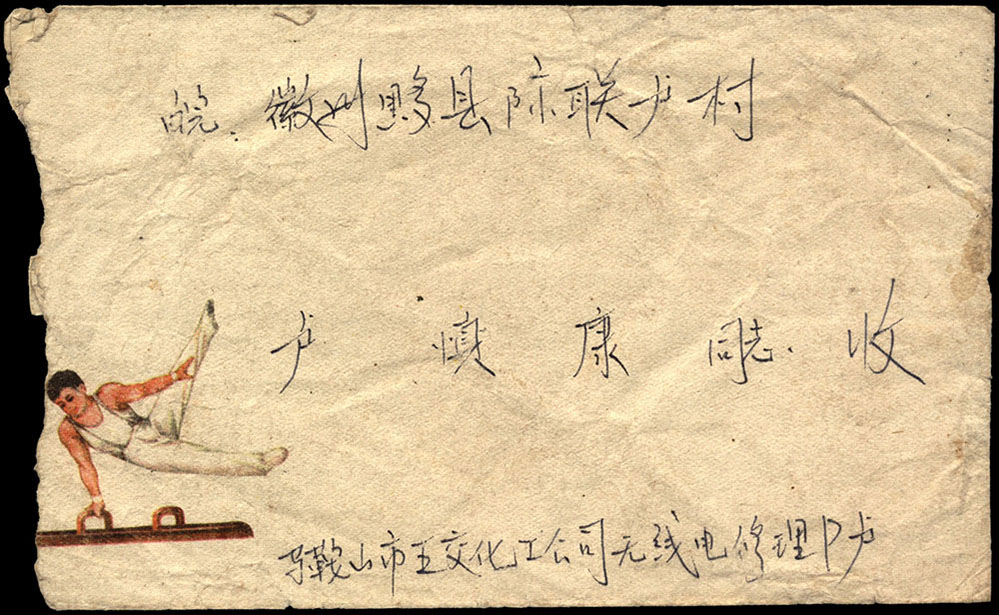 皖. 徽州黟县际联卢村
卢慎康同志. 收
马鞍山市五交化工公司无线电修理 卢